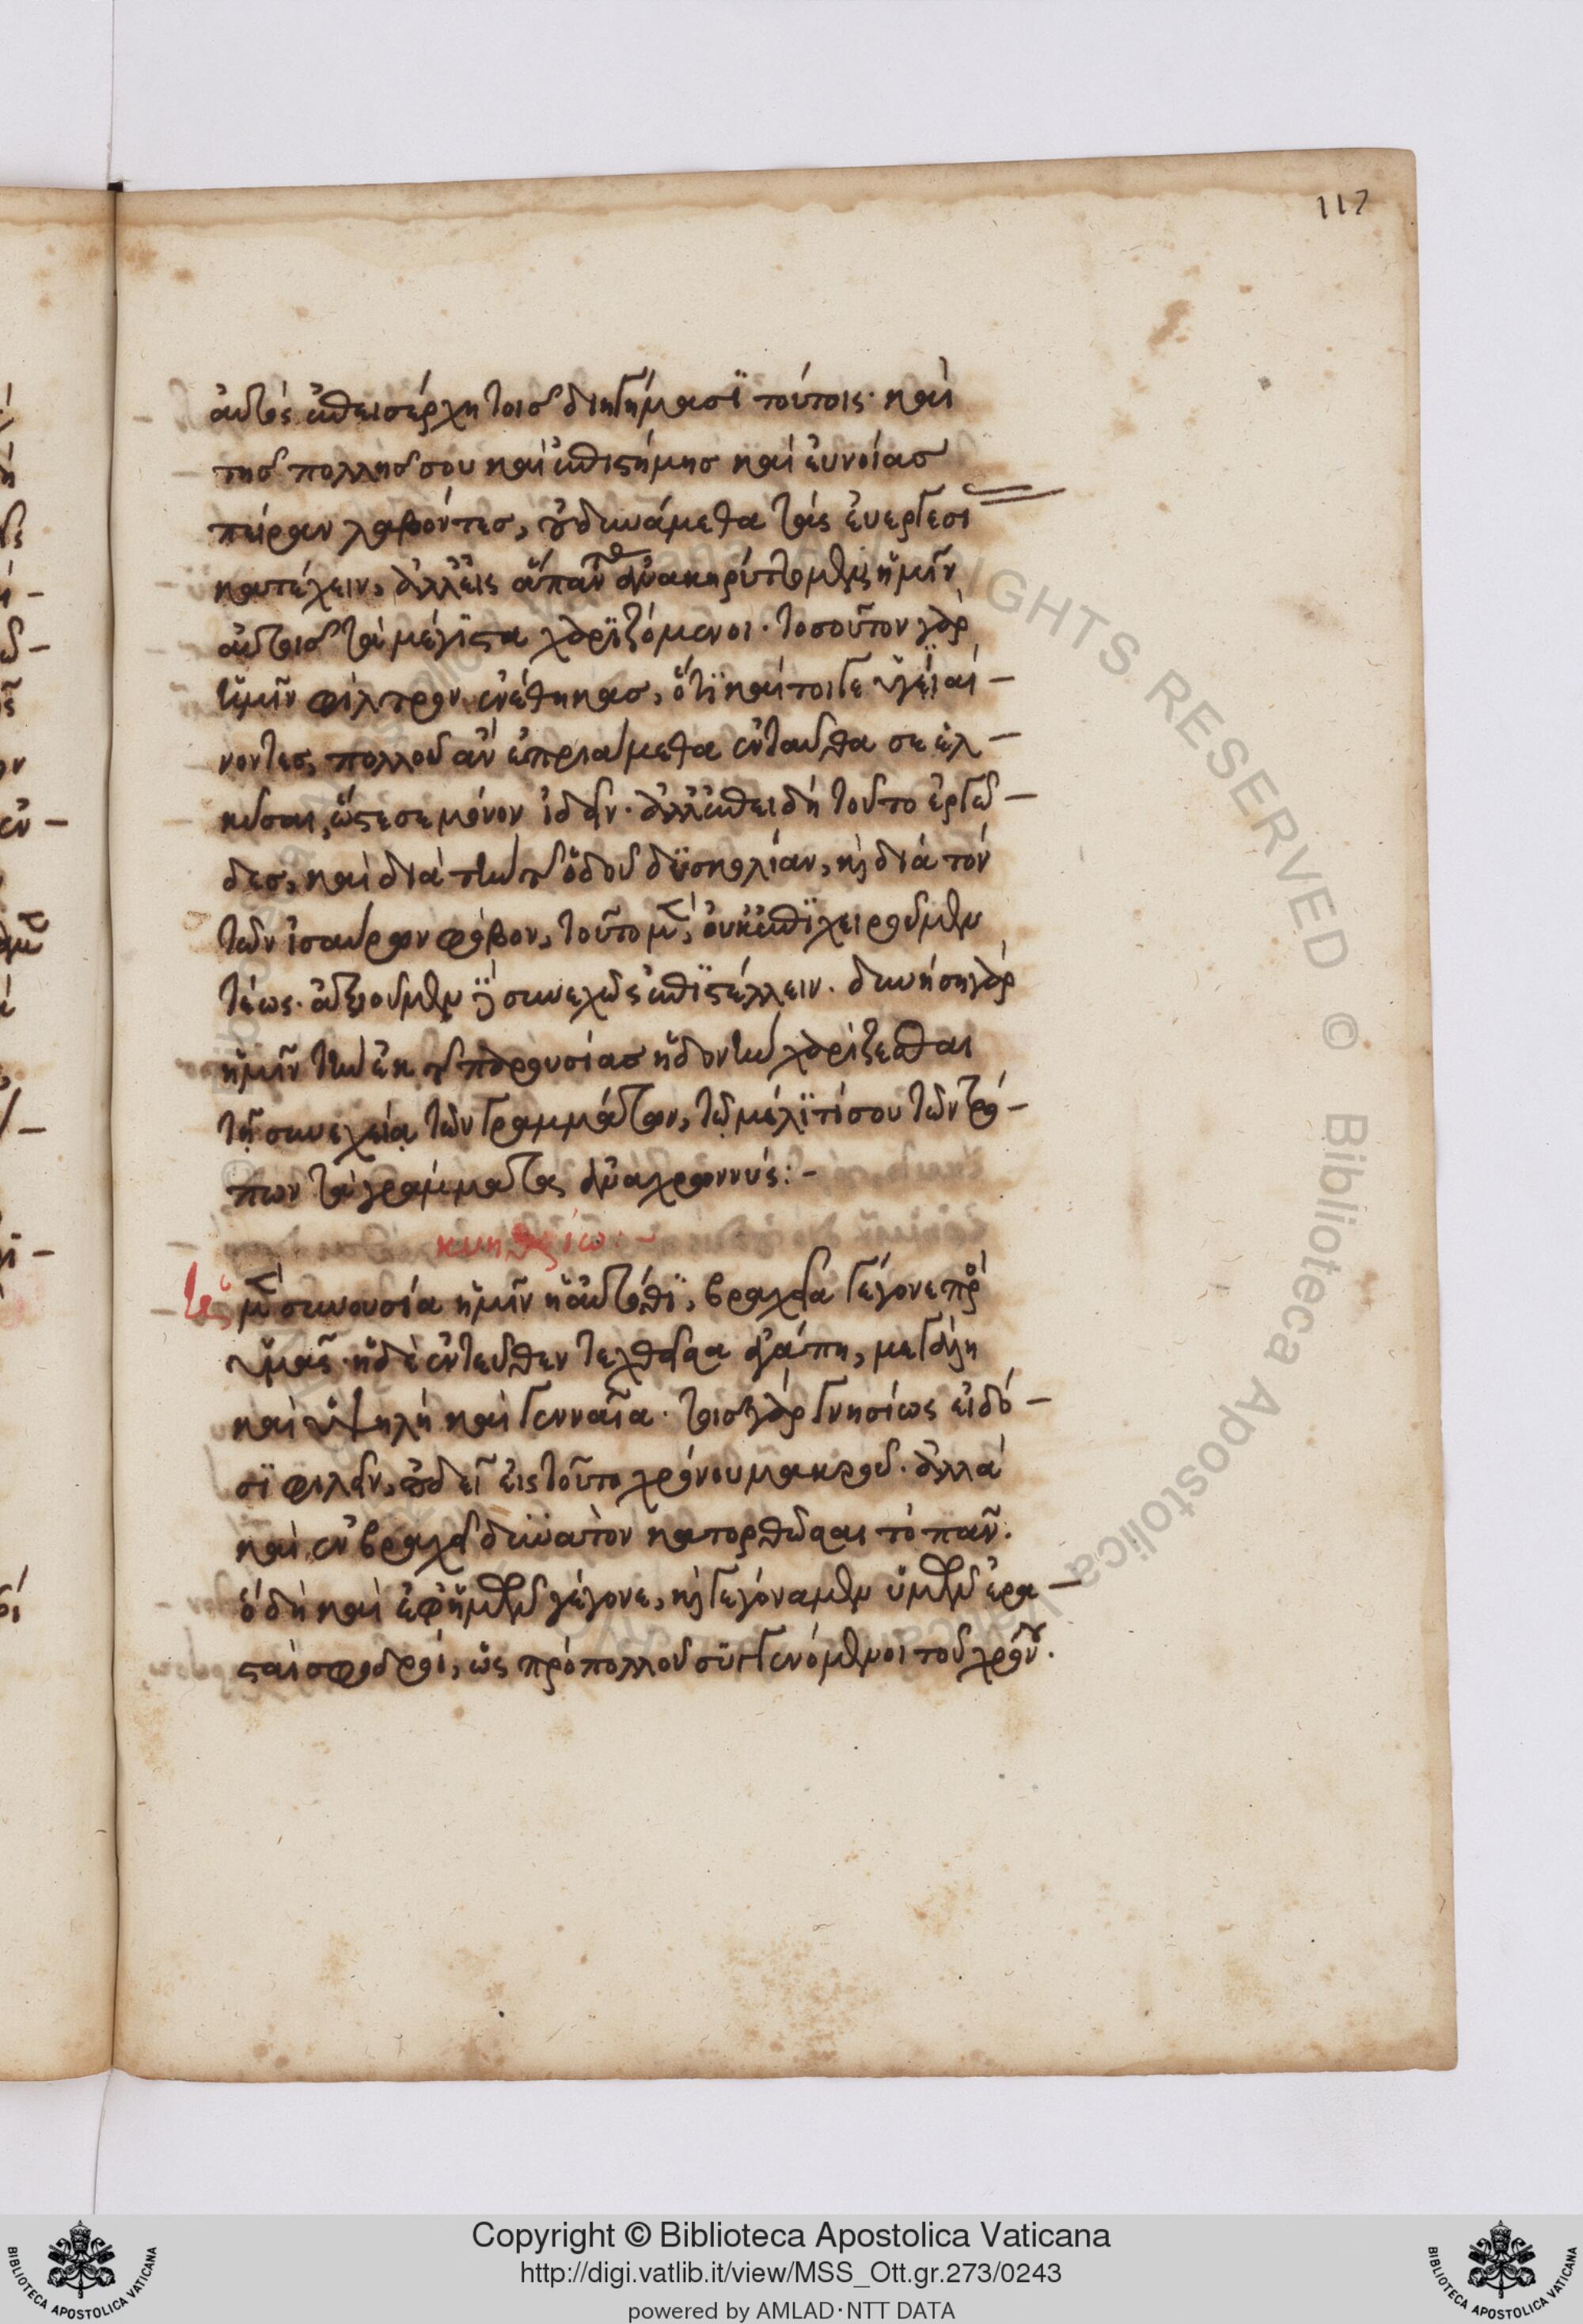 117
αὐτὸς ἐπεισέρχη τοῖς διηγήμασϊ τούτοις· καὶ
τῆς πολλῆς σου καὶ ἐπιστήμης καὶ εὐνοίας
πεῖραν λαβόντες, οὐ δυνάμεθα τὰς εὐεργεσί
κατέχειν, ἀλλ' εἰς ἅπαντας ἀνακηρύττομεν ἡμῖν
αὐτοῖς τὰ μέγϊστα χαρϊζόμενοι· τοσοῦτον γὰρ
ἡμῖν φίλτρον ἐνέθηκας, ὅτϊ καίτοιγε ὑγϊαί –
νοντες, πολλοῦ ἂν ἐπριάμεθα ἐνταῦθα σε ἑλ –
κῦσαι, ὥστε σε μόνον ἰδεῖν· ἀλλ' ἐπειδὴ τοῦτο ἐργῶ –
δες, καὶ διὰ τὴν τῆς ὁδοῦ δυσκολίαν, καὶ διὰ τὸν
τῶν ἰσαύρων φόβον, τοῦτο μὲν, οὐκ ἐπϊχειροῦμεν
τέως· ἀξιοῦμεν δὲ συνεχῶς ἐπϊστέλλειν· δυνήση γὰρ
ἡμῖν τὴν ἐκ τῆς παρουσίας ἡδονὴν χαρίζεσθαι
τῇ συνεχείᾳ τῶν γραμμάτων, τῷ μέλϊτί σου τῶν τρό –
πων τὰ γράμματα ἀναχρωννύς: –
κυνηγίω: –
ἡ μὲν συνουσία ἡμῖν ἡ αὐτόθϊ, βραχεῖα γέγονε πρὸς
ὑμᾶς· ἡ δὲ ἐντεῦθεν τεχθεῖσα ἀγάπη, μεγάλη
καὶ ὑψηλὴ καὶ γενναῖα· τοῖς γὰρ γνησίως εἰδό –
σϊ φιλεῖν, οὐ δεῖ εἰς τοῦτο χρόνου μακροῦ· ἀλλὰ
καὶ ἐν βραχεῖ δυνατὸν κατορθῶσαι τὸ πᾶν·
ὃ δὴ καὶ ἐφ' ἡμῶν γέγονε, καὶ γεγόναμεν ὑμῶν ἐρα –
σταὶ σφοδροί, ὡς πρὸ πολλοῦ συγγενόμενοι τοῦ χρόνου·
RIGHTS RESERVED © Biblioteca Apostolica Vaticana
Copyright © Biblioteca Apostolica Vaticana
http://digi.vatlib.it/view/MSS_Ott.gr.273/0243
powered by AMLAD·NTT DATA
BIBLIOTECA APOSTOLICA VATICANA
BIBLIOTECA APOSTOLICA VATICANA